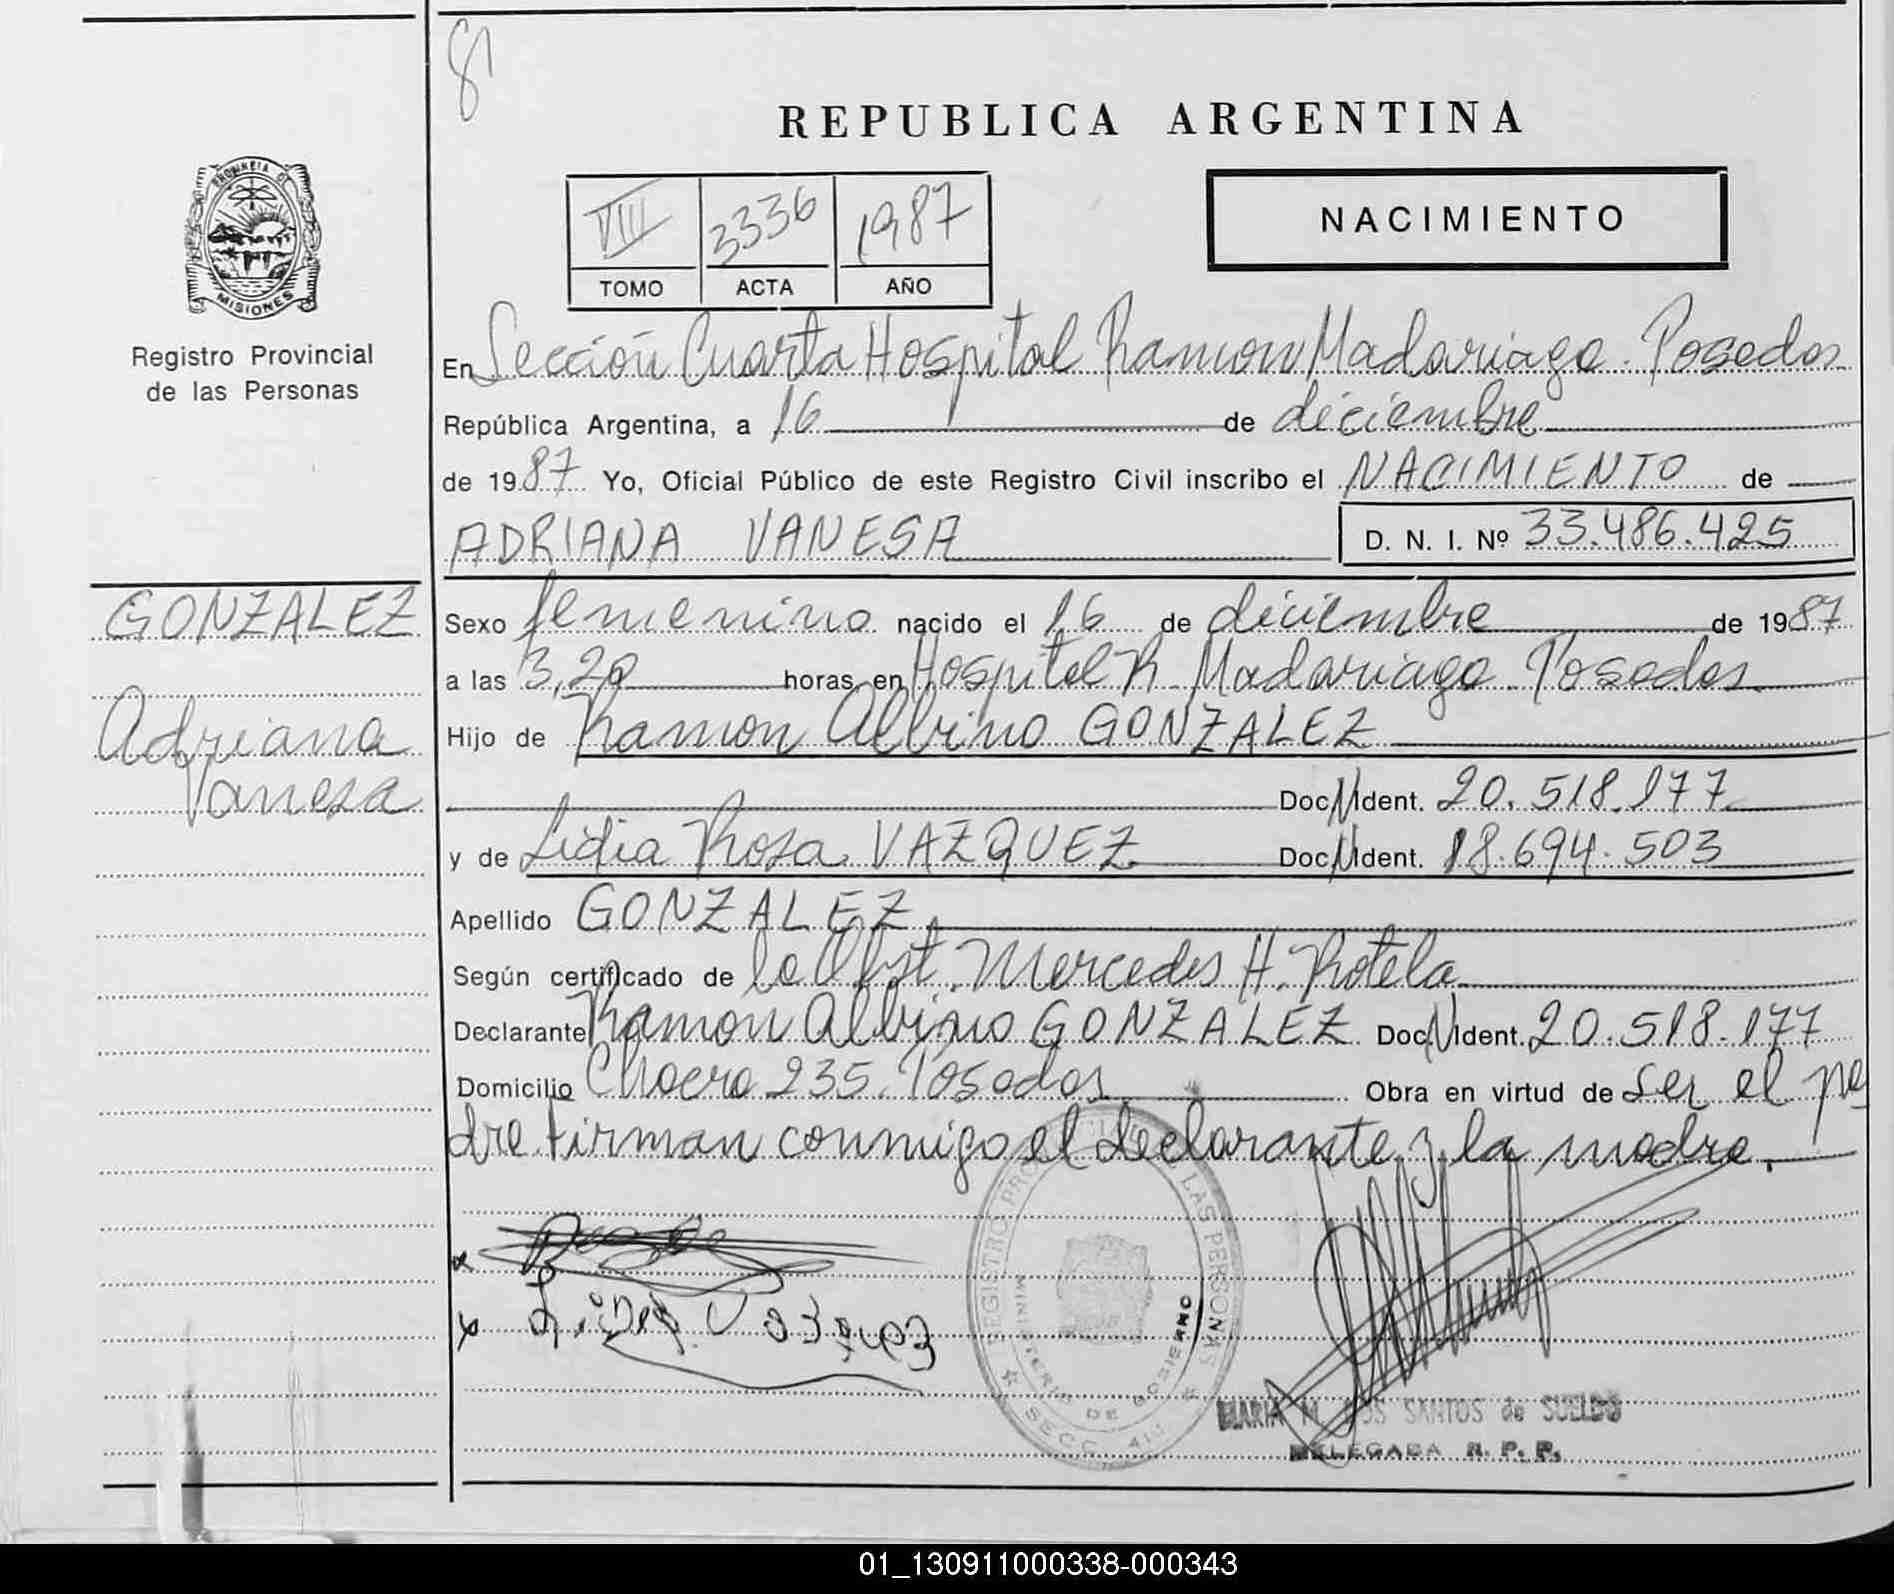 81
REPUBLICA ARGENTINA
PROVINCIA DE
MISIONES
Registro Provincial
de las Personas
VIII 3336 1987
TOMO ACTA AÑO
NACIMIENTO
En Sección Cuarta Hospital Ramon Madariaga. Posadas
República Argentina, a 16 de diciembre
de 1987 Yo, Oficial Público de este Registro Civil inscribo el NACIMIENTO de
ADRIANA VANESA D. N. I. Nº 33.486.425
GONZALEZ
Adriana
Vanesa
Sexo femenino nacido el 16 de diciembre de 1987
a las 3,20 horas en Hospital R. Madariaga. Posadas
Hijo de Ramon Albino GONZALEZ
Doc. N Ident. 20.518.177
y de Lidia Rosa VAZQUEZ Doc. N Ident. 18.694.503
Apellido GONZALEZ
Según certificado de la Obst. Mercedes H. Rotela
Declarante Ramon Albino GONZALEZ Doc. N Ident. 20.518.177
Domicilio Chacra 235. Posadas Obra en virtud de ser el pa
dre. Firman conmigo el declarante y la madre.
REGISTRO PROVINCIAL DE LAS PERSONAS
MINISTERIO DE GOBIERNO
SECC. 4ta
MARIA M. DOS SANTOS de SUELDO
DELEGADA R. P. P.
01_130911000338-000343